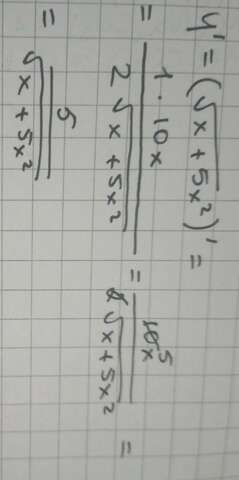 y' = (√(x + 5x²))' =
= (1 · 10x)/(2√(x + 5x²)) = (10x 5)/(2√(x + 5x²)) =
= 5/√(x + 5x²)